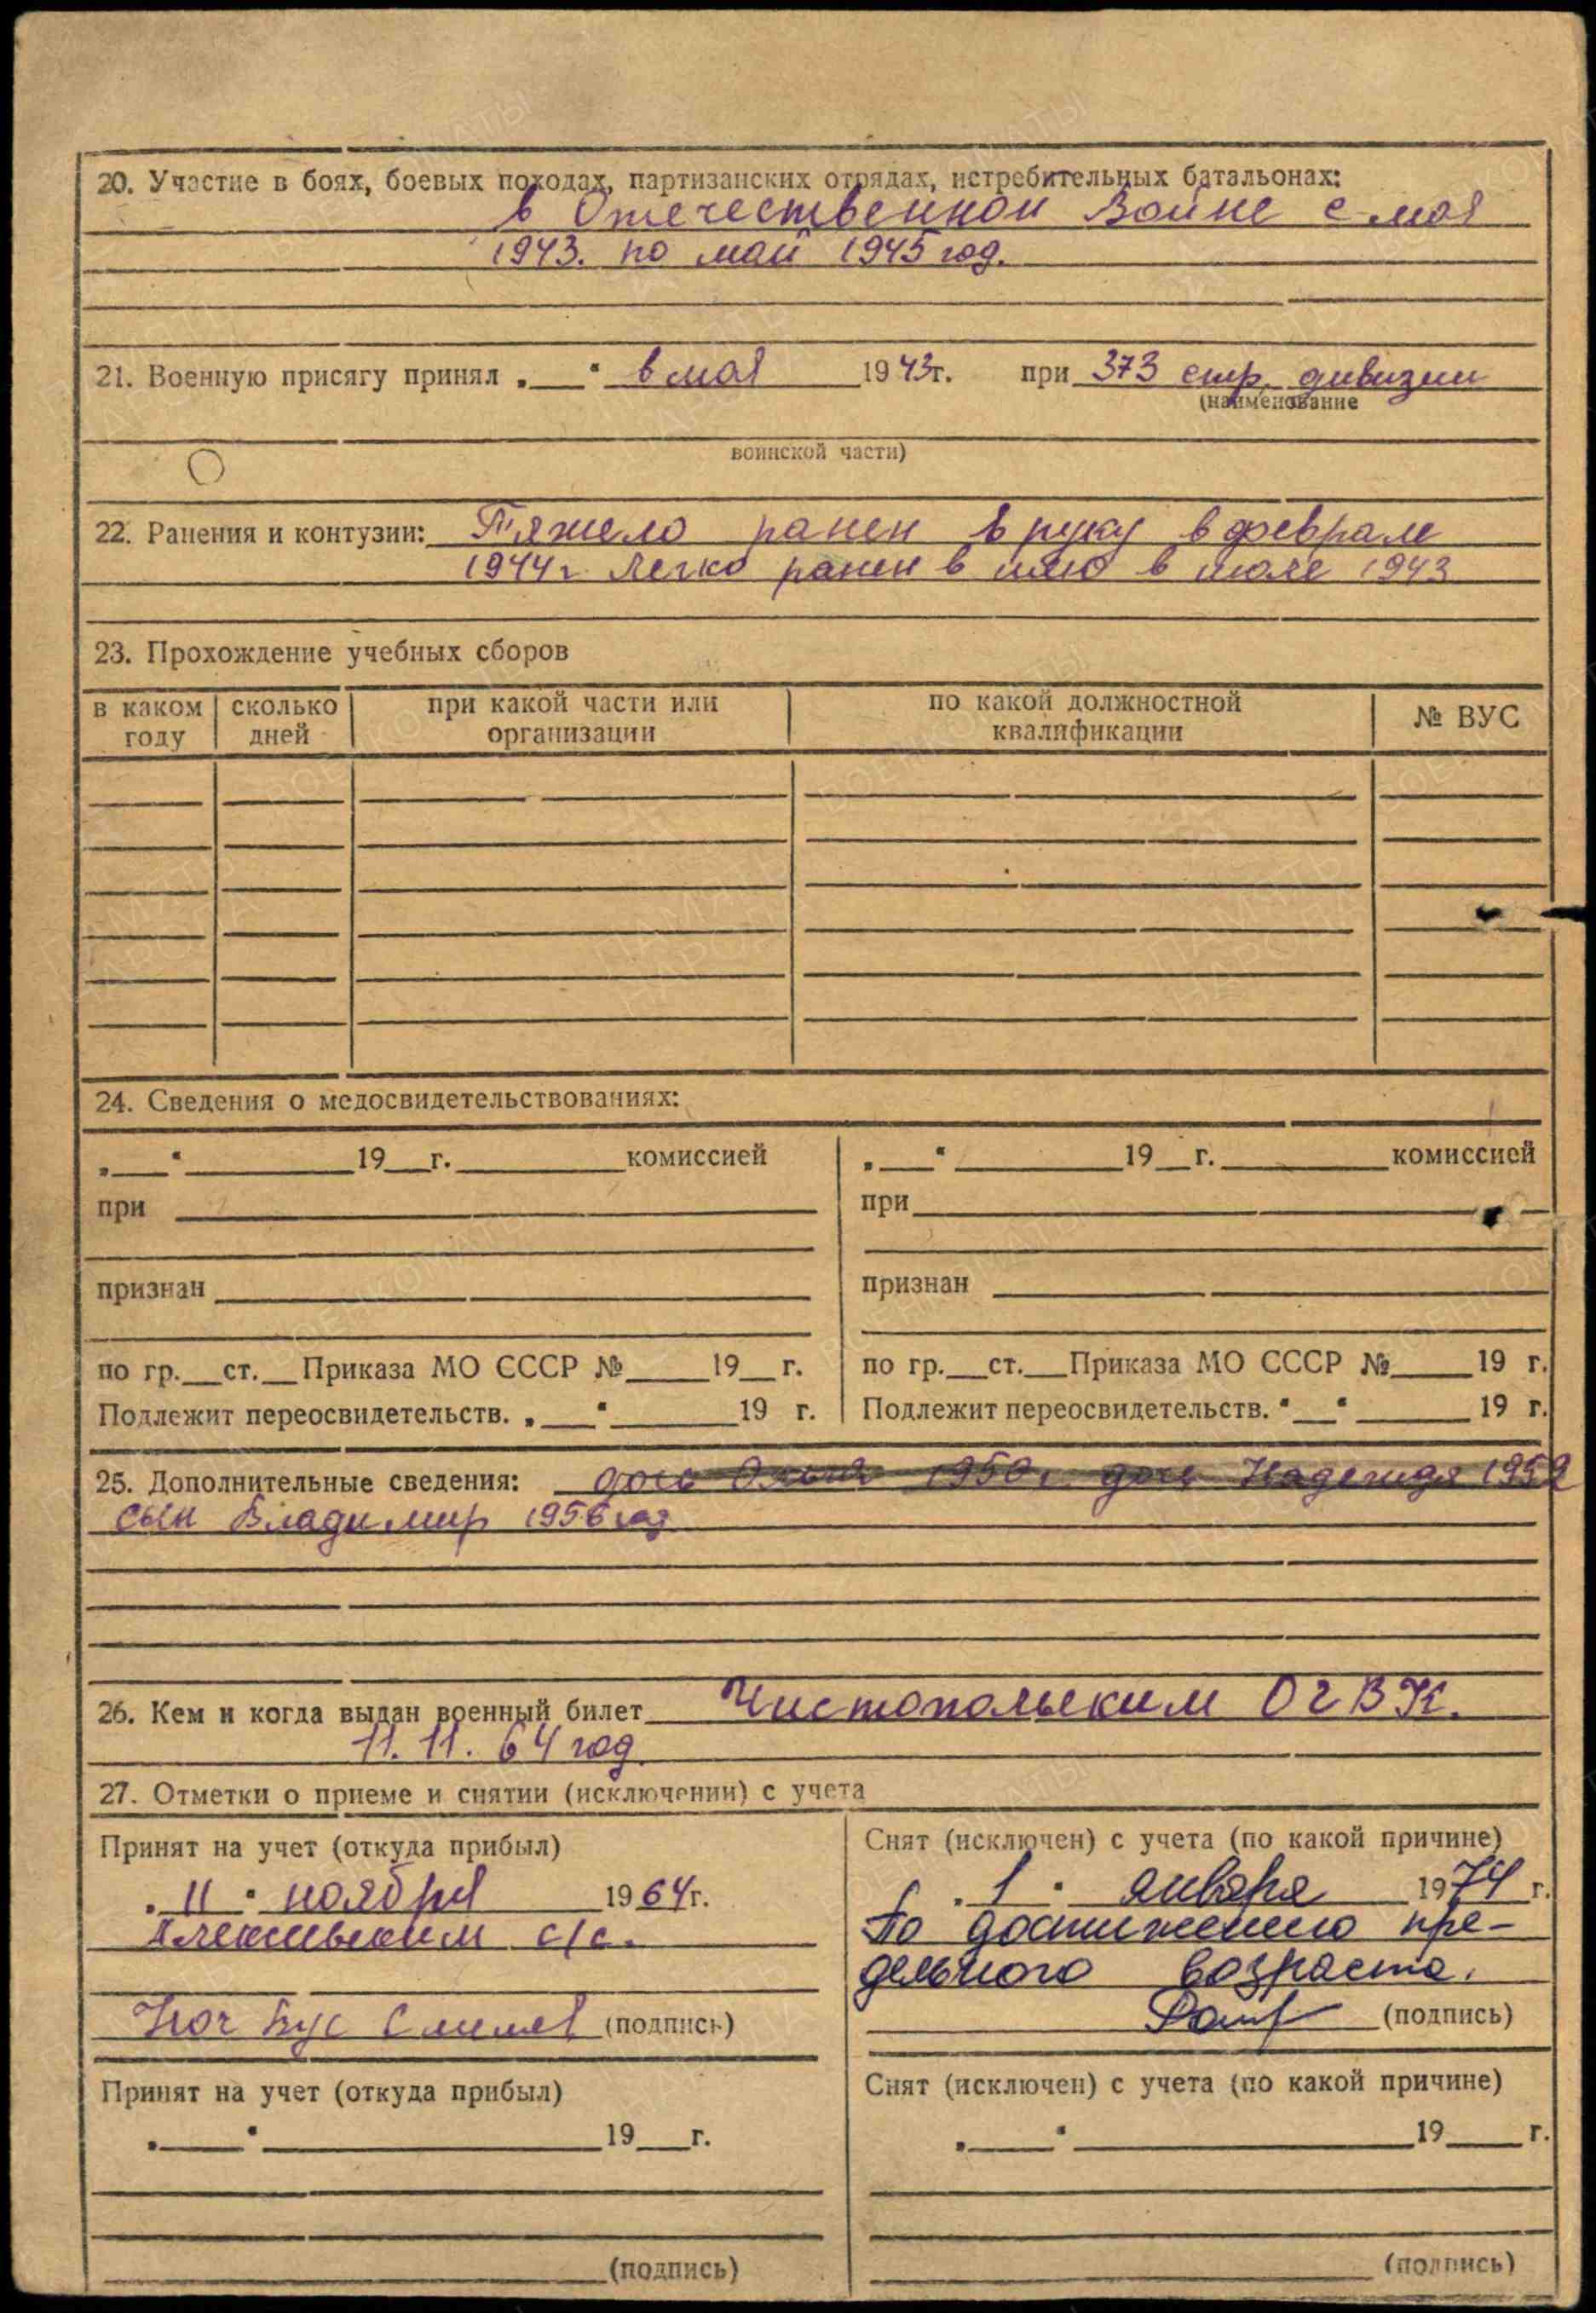 20. Участие в боях, боевых походах, партизанских отрядах, истребительных батальонах:
в Отечественной Войне с мая
1943. по май 1945 год.
21. Военную присягу принял „ “ в мая 1943г. при 373 стр. дивизии
(наименование
воинской части)
22. Ранения и контузии: Тяжело ранен в руку в феврале
1944г Легко ранен в шею в июле 1943
23. Прохождение учебных сборов
в каком году сколько дней при какой части или организации по какой должностной квалификации № ВУС
24. Сведения о медосвидетельствованиях:
„ “ 19 г. комиссией „ “ 19 г. комиссией
при при
признан признан
по гр. ст. Приказа МО СССР № 19 г. по гр. ст. Приказа МО СССР № 19 г.
Подлежит переосвидетельств. „ “ 19 г. Подлежит переосвидетельств. “ “ 19 г.
25. Дополнительные сведения: дочь Ольга 1950г дочь Надежда 1952
сын Владимир 1956 год
26. Кем и когда выдан военный билет Чистопольским ОГВК.
11.11.64 год.
27. Отметки о приеме и снятии (исключении) с учета
Принят на учет (откуда прибыл) Снят (исключен) с учета (по какой причине)
„ 11 “ ноября 1964г. „ 1 “ января 1974 г.
с/с. По достижению пре-
дельного возраста.
(подпись) (подпись)
Принят на учет (откуда прибыл) Снят (исключен) с учета (по какой причине)
„ “ 19 г. „ “ 19 г.
(подпись) (подпись)